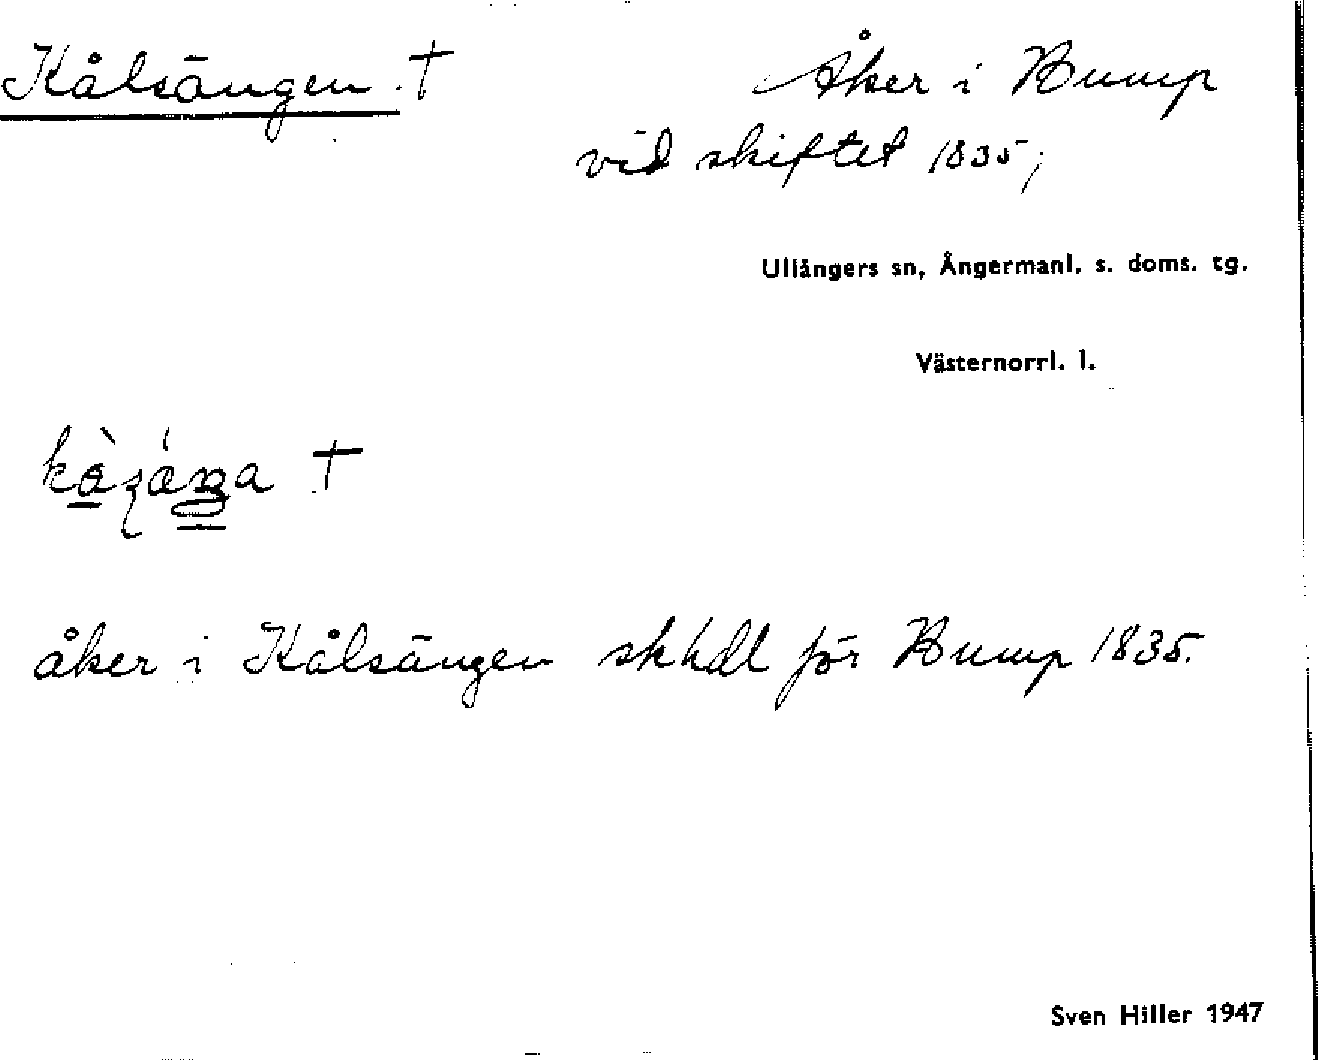 Kålsängen † Åker i Bump
vid skiftet 1835;
Ullångers sn, Ångermanl. s. doms. tg.
Västernorrl. l.
†
åker i Kålsängen skhdl för Bump 1835.
Sven Hiller 1947